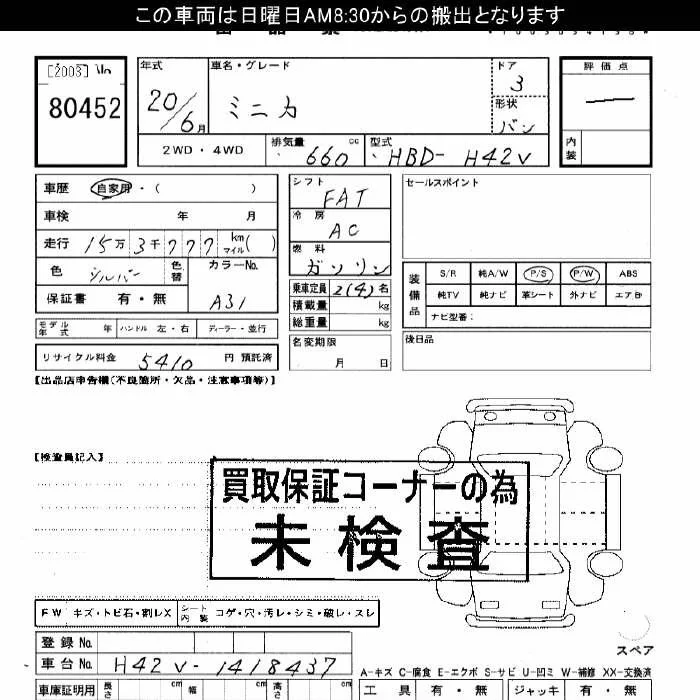 この車両は日曜日AM8:30からの搬出となります
[2003] No
80452
年式 20/6月
車名・グレード ミニカ
ドア 3
形状 バン
評価点 —
内装
2WD・4WD
排気量 660 cc
型式 HBD- H42V
車歴 自家用・( )
車検 年 月
走行 15万3千777 km マイル( )
色 シルバー 色替
カラーNo. A31
保証書 有・無
シフト FAT
冷房 AC
燃料 ガソリン
乗車定員 2(4)名
積載量 kg
総重量 kg
セールスポイント
装備品
S/R 純A/W P/S P/W ABS
純TV 純ナビ 革シート 外ナビ エアB
ナビ型番:
モデル年式 年 ハンドル 左・右 ディーラー・並行
名変期限 月 日
後日品
リサイクル料金 5410 円 預託済
【出品店申告欄(不良箇所・欠品・注意事項等)】
【検査員記入】
買取保証コーナーの為
未検査
FW キズ・トビ石・割レX
シート内装 コゲ・穴・汚レ・シミ・破レ・スレ
登録No.
スペア
車台No. H42V-1418437
A-キズ C-腐食 E-エクボ S-サビ U-凹ミ W-補修 XX-交換済
車庫証明用 長さ cm 幅 cm 高さ cm
工具 有・無 ジャッキ 有・無